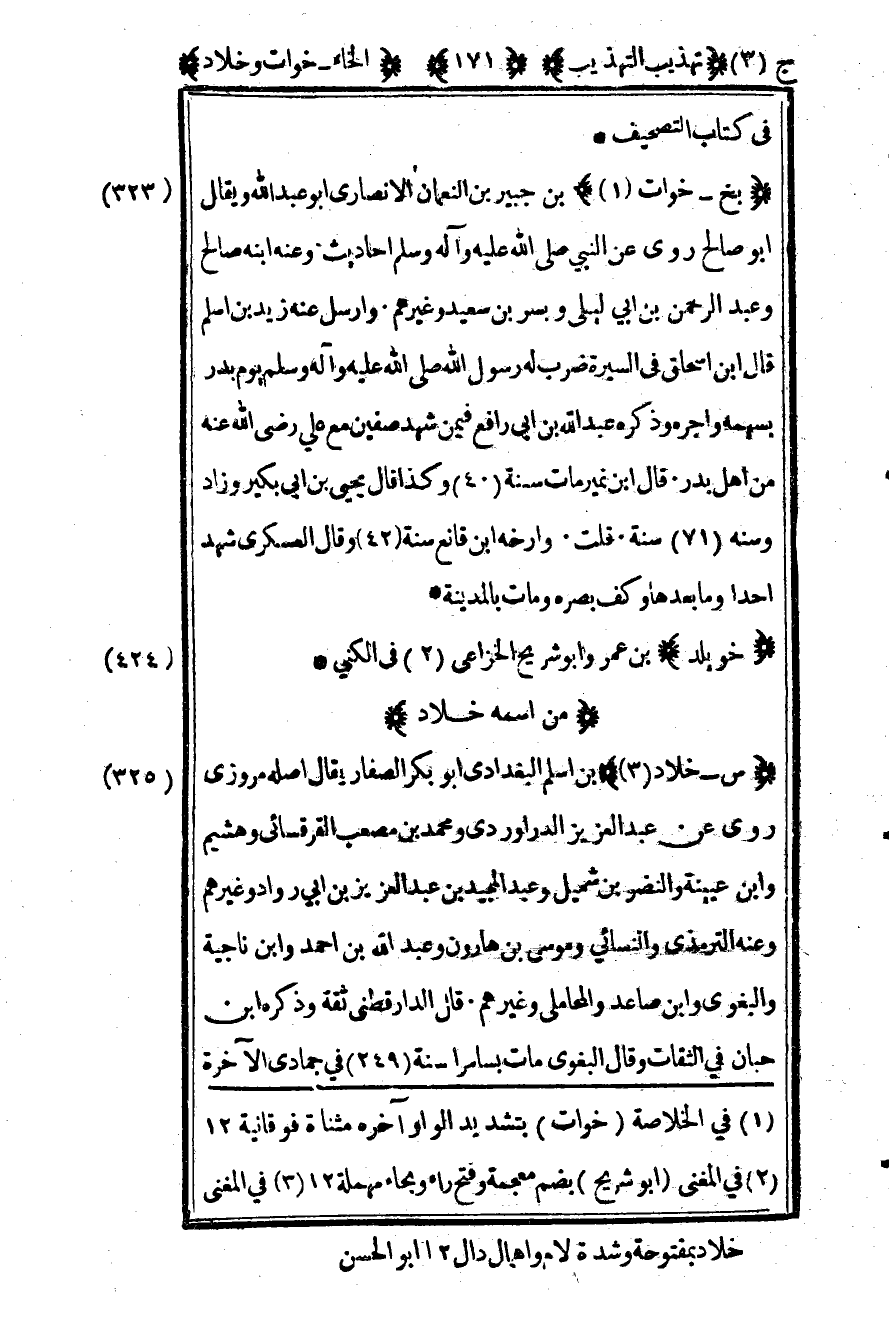 ج (٣) ﴿تهذيب التهذيب﴾ ﴿١٧١﴾ ﴿الخاء ـ خوات وخلاد﴾
فى كتاب التصحيف *
﴿ بخ ـ خوات (١) ﴾ بن جبير بن النعمان الانصارى ابو عبد الله ويقال (٣٢٣)
ابو صالح روى عن النبي صلى الله عليه وآله وسلم احاديث ٠ وعنه ابنه صالح
وعبد الرحمن بن ابي ليلى وبسر بن سعيد وغيرهم ٠ وارسل عنه زيد بن اسلم
قال ابن اسحاق فى السيرة ضرب له رسول الله صلى الله عليه وآله وسلم يوم بدر
بسهمه واجره وذكره عبد الله بن ابى رافع فيمن شهد صفين مع علي رضى الله عنه
من اهل بدر ٠ قال ابن نمير مات سنة (٤٠) وكذا قال يحيى بن ابى بكير وزاد
وسنه (٧١) سنة ٠ قلت ٠ وارخه ابن قانع سنة (٤٢) وقال العسكرى شهد
احدا وما بعدها وكف بصره ومات بالمدينة *
﴿ خويلد ﴾ بن عمرو ابو شريح الخزاعى (٢) فى الكنى * (٤٢٤)
﴿ من اسمه خلاد ﴾
﴿ س ـ خلاد (٣) ﴾ بن اسلم البغدادى ابو بكر الصفار يقال اصله مروزى (٣٢٥)
روى عن ٠ عبد العزيز الدراوردى ومحمد بن مصعب القرقسائى وهشيم
وابن عيينة والنضر بن شميل وعبد المجيد بن عبد العزيز بن ابي رواد وغيرهم
وعنه الترمذى والنسائي وموسى بن هارون وعبد الله بن احمد وابن ناجية
والبغوى وابن صاعد والمحاملى وغيرهم ٠ قال الدارقطنى ثقة وذكره ابن
حبان في الثقات وقال البغوى مات بسامرا سنة (٢٤٩) في جمادى الآخرة
(١) في الخلاصة (خوات) بتشديد الواو آخره مثناة فوقانية ١٢
(٢) في المغنى (ابو شريح) بضم معجمة وفتح راء وبحاء مهملة ١٢ (٣) في المغنى
خلاد بمفتوحة وشدة لام واهمال دال ١٢ ابو الحسن